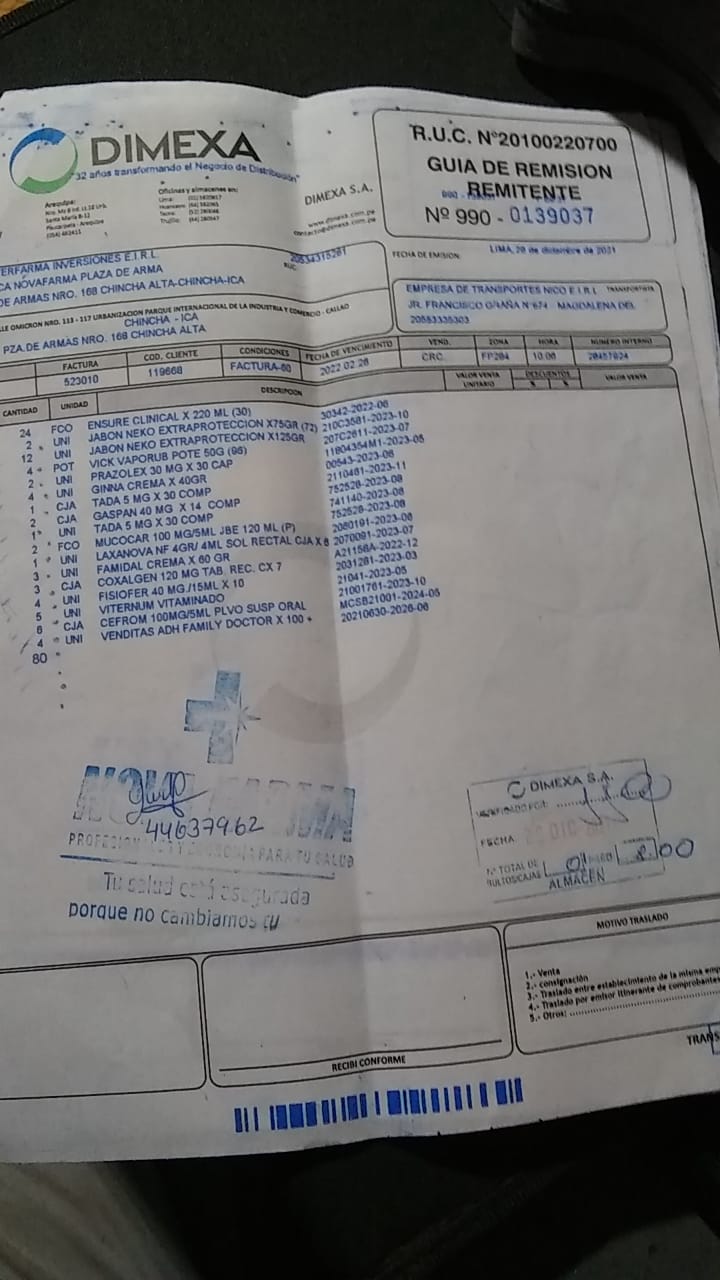 DIMEXA
"32 años transformando el Negocio de Distribución"
Arequipa:
Santa María B-12
Paucarpata - Arequipa
(054) 462411
Oficinas y almacenes en:
Lima:
Huancayo:
Tacna:
Trujillo:
DIMEXA S.A.
www.dimexa.com.pe
contacto@dimexa.com.pe
R.U.C. N°20100220700
GUIA DE REMISION
REMITENTE
Nº 990 - 0139037
ERFARMA INVERSIONES E.I.R.L.
CA NOVAFARMA PLAZA DE ARMA
DE ARMAS NRO. 168 CHINCHA ALTA-CHINCHA-ICA
RUC
FECHA DE EMISION:
LIMA, 28 de diciembre de 2021
LLE OMICRON NRO. 113 - 117 URBANIZACION PARQUE INTERNACIONAL DE LA INDUSTRIA Y COMERCIO - CALLAO
CHINCHA - ICA
PZA.DE ARMAS NRO. 168 CHINCHA ALTA
EMPRESA DE TRANSPORTES NICO E.I.R.L TRANSPORTISTA
JR. FRANCISCO GRAÑA N°674 - MAGDALENA DEL
FACTURA COD. CLIENTE CONDICIONES FECHA DE VENCIMIENTO VEND. ZONA HORA NUMERO INTERNO
523010 119668 FACTURA-60 2022 02 26 CRC. FP204 10:06
CANTIDAD UNIDAD DESCRIPCION VALOR VENTA UNITARIO DESCUENTOS % % VALOR VENTA
24 FCO ENSURE CLINICAL X 220 ML (30) 30342-2022-06
2 UNI JABON NEKO EXTRAPROTECCION X75GR (72) 210C3581-2023-10
12 UNI JABON NEKO EXTRAPROTECCION X125GR 207C2611-2023-07
4 POT VICK VAPORUB POTE 50G (96) 11804354M1-2023-05
2 UNI PRAZOLEX 30 MG X 30 CAP 00543-2023-06
4 UNI GINNA CREMA X 40GR 2110461-2023-11
1 CJA TADA 5 MG X 30 COMP 752528-2023-08
2 CJA GASPAN 40 MG X 14 COMP 741140-2023-08
1 UNI TADA 5 MG X 30 COMP 752528-2023-08
2 FCO MUCOCAR 100 MG/5ML JBE 120 ML (P) 2060191-2023-06
1 UNI LAXANOVA NF 4GR/ 4ML SOL RECTAL CJA X 6 2070091-2023-07
3 UNI FAMIDAL CREMA X 60 GR A21156A-2022-12
3 CJA COXALGEN 120 MG TAB. REC. CX 7 2031281-2023-03
4 UNI FISIOFER 40 MG /15ML X 10 21041-2023-05
5 UNI VITERNUM VITAMINADO 21001761-2023-10
6 CJA CEFROM 100MG/5ML PLVO SUSP ORAL MCSB21001-2024-05
4 UNI VENDITAS ADH FAMILY DOCTOR X 100 + 20210630-2026-06
80
44637962
PARA TU SALUD
Tu salud está asegurada
porque no cambiamos tu
DIMEXA S.A.
FECHA:
Nº TOTAL DE
BULTOS/CAJAS
ALMACEN
RECIBI CONFORME
MOTIVO TRASLADO
1.- Venta
2.- consignación
3.- Traslado entre establecimiento de la misma
4.- Traslado por emisor itinerante de comprobantes
5.- Otros:
TRANS